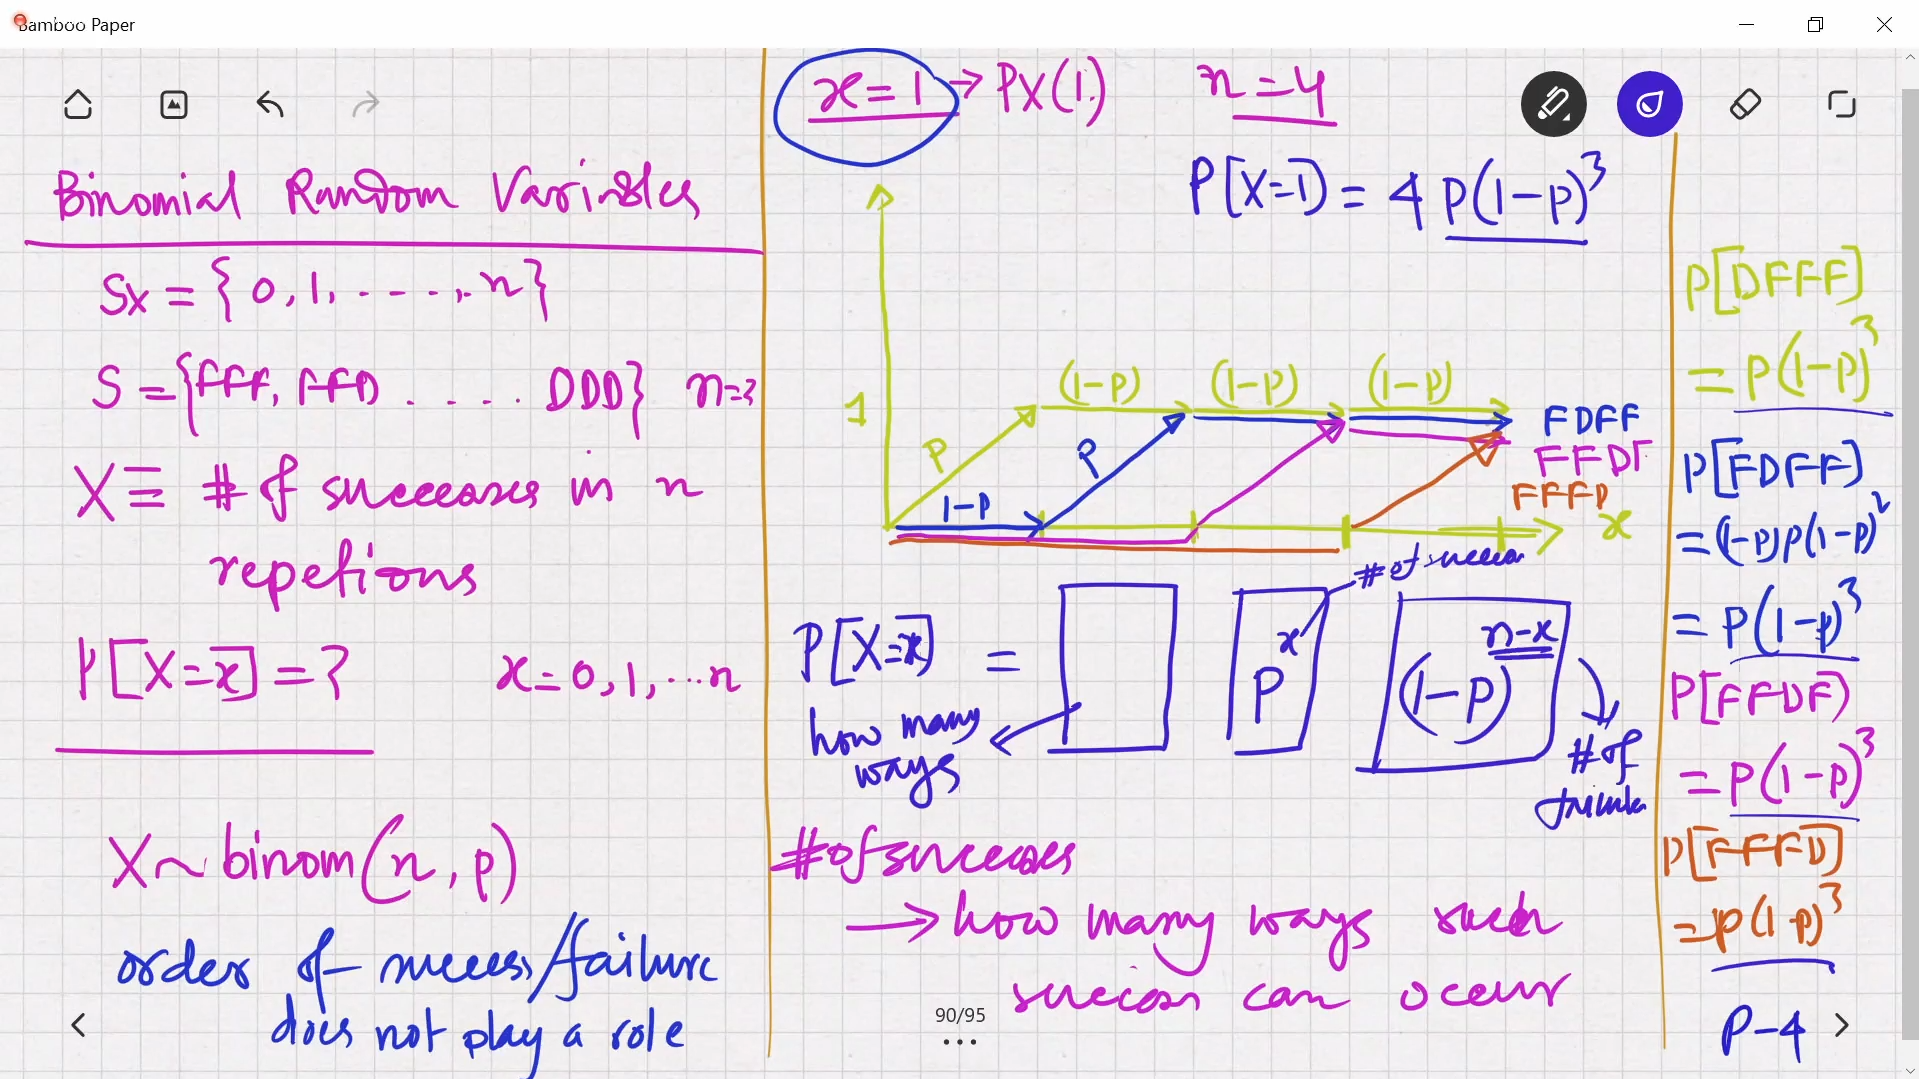 Bamboo Paper
Binomial Random Variables
Sx = {0, 1, ....., n}
S = {FFF, FFD .... DDD} n=3
X ≡ # of successes in n
repetions
P[X=x] = ? x=0,1,...n
X ~ binom(n, p)
order of success/failure
does not play a role
x=1 → PX(1) n=4
P[X=1] = 4 P(1-p)³
1
P
(1-p) (1-p) (1-p)
P
1-p
FDFF
FFDF
FFFD
x
P[X=x] = P^x (1-p)^(n-x)
how many
ways
# of success
# of
# of successes
→ how many ways such
success can occur
90/95
P[DFFF]
= P(1-p)³
P[FDFF]
= (1-p)p(1-p)²
= P(1-p)³
P[FFDF]
= P(1-p)³
P[FFFD]
= P(1-p)³
P-4